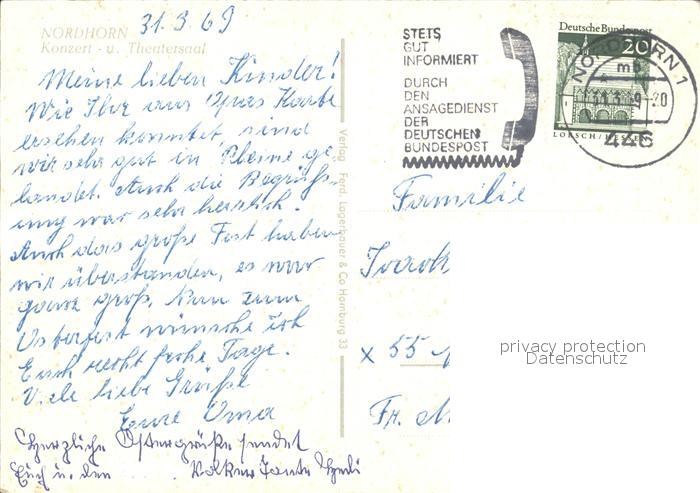 31.3.69
NORDHORN
Konzert - u. Theatersaal
Meine lieben Kinder!
Wie Ihr aus Opas Karte
ersehen konntet, sind
wir sehr gut in Rheine ge-
landet. Auch die Begrüß-
ung war sehr herzlich.
Auch das große Fest haben
wir überstanden, es war
ganz groß. Nun zum
Osterfest wünsche ich
Euch recht frohe Tage.
Viele liebe Grüße
Eure Oma
Herzliche Ostergrüße sendet
Euch u. den Tante
Verlag Ferd. Lagerbauer & Co Hamburg 33
STETS
GUT
INFORMIERT
DURCH
DEN
ANSAGEDIENST
DER
DEUTSCHEN
BUNDESPOST
Deutsche Bundespost
20
LORSCH/HESSEN
NORDHORN 1
mb
446
Familie
x 55
Fr.
privacy protection
Datenschutz